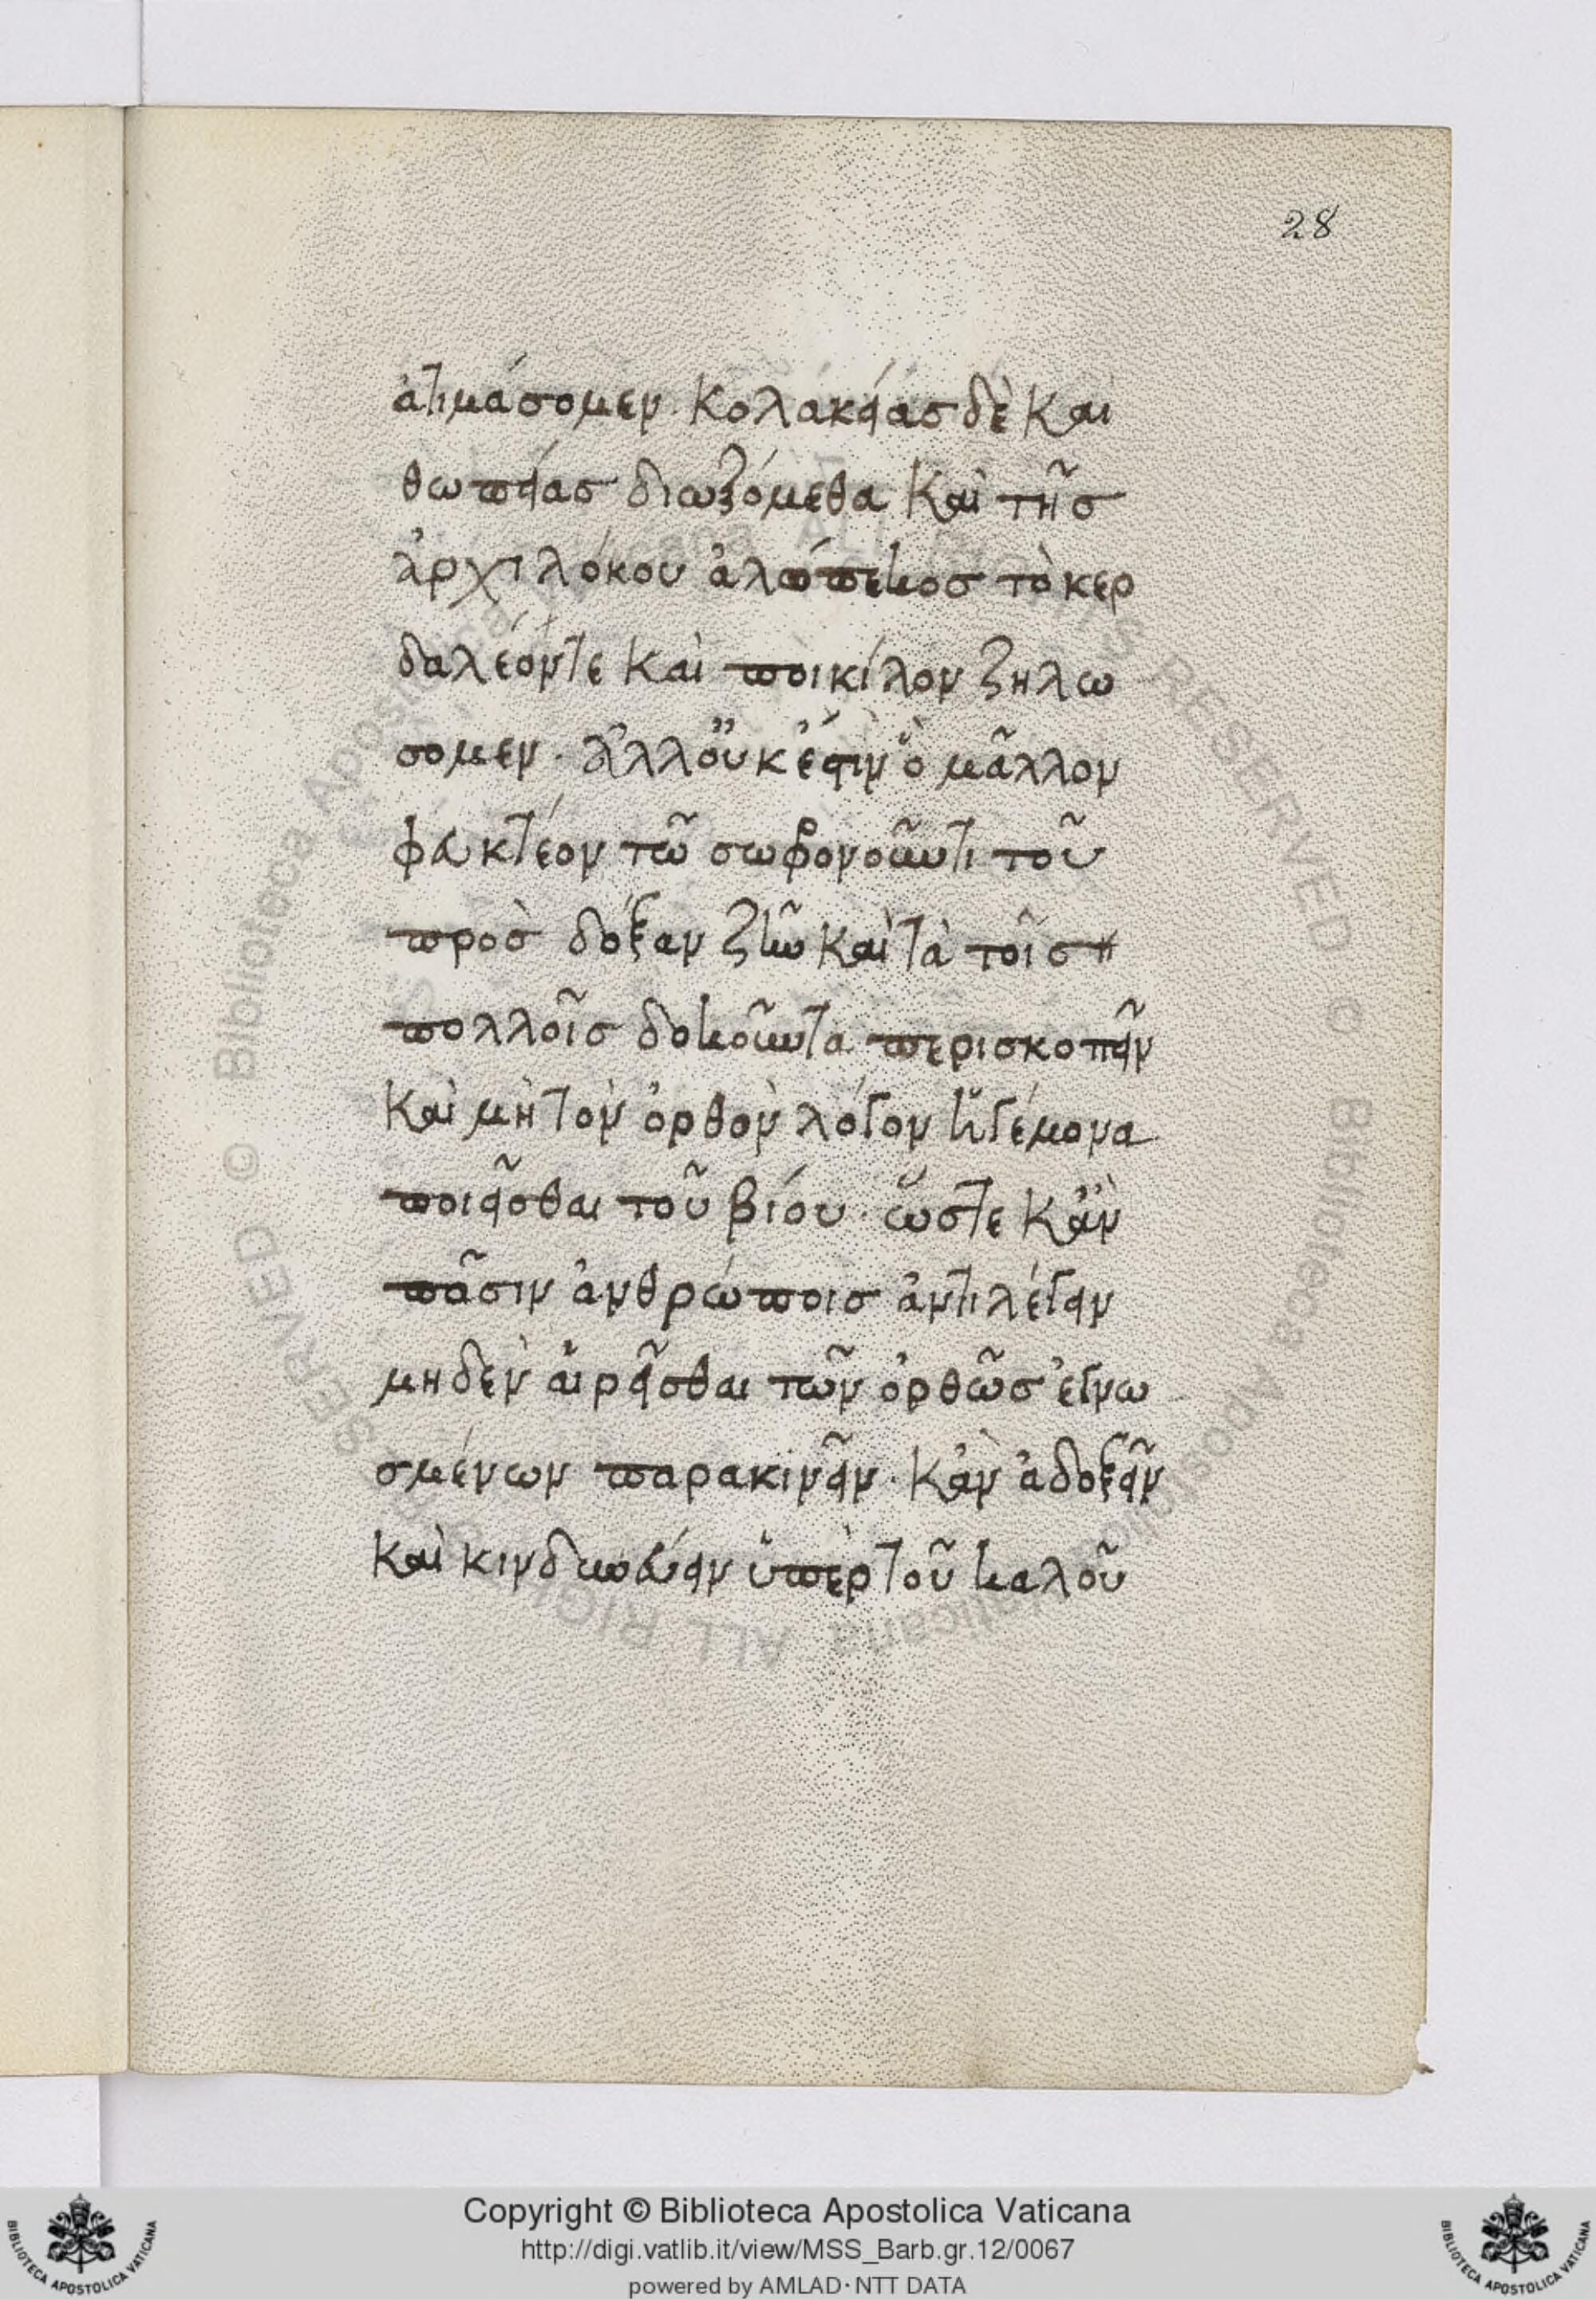 28
ἀτιμάσομεν. κολακείας δὲ καὶ
θωπείας διωξόμεθα καὶ τῆς
ἀρχιλόκου ἀλώπεκος τὸ κερ
δαλέόν τε καὶ ποικίλον ζηλω
σομεν. ἀλλ' οὐκ ἔστιν ὃ μᾶλλον
φευκτέον τῶ σωφρονοῦντι τοῦ
πρὸς δόξαν ζῆν καὶ τὰ τοῖς
πολλοῖς δοκοῦντα περισκοπεῖν
καὶ μὴ τὸν ὀρθὸν λόγον ἡγέμονα
ποιεῖσθαι τοῦ βίου. ὥστε κἂν
πᾶσιν ἀνθρώποις ἀντιλέγειν
μηδὲν αἱρεῖσθαι τῶν ὀρθῶς ἐγνω
σμένων παρακινεῖν. κἀν ἀδοξεῖν
καὶ κινδυνεύειν ὑπὲρ τοῦ καλοῦ
Copyright © Biblioteca Apostolica Vaticana
http://digi.vatlib.it/view/MSS_Barb.gr.12/0067
powered by AMLAD·NTT DATA